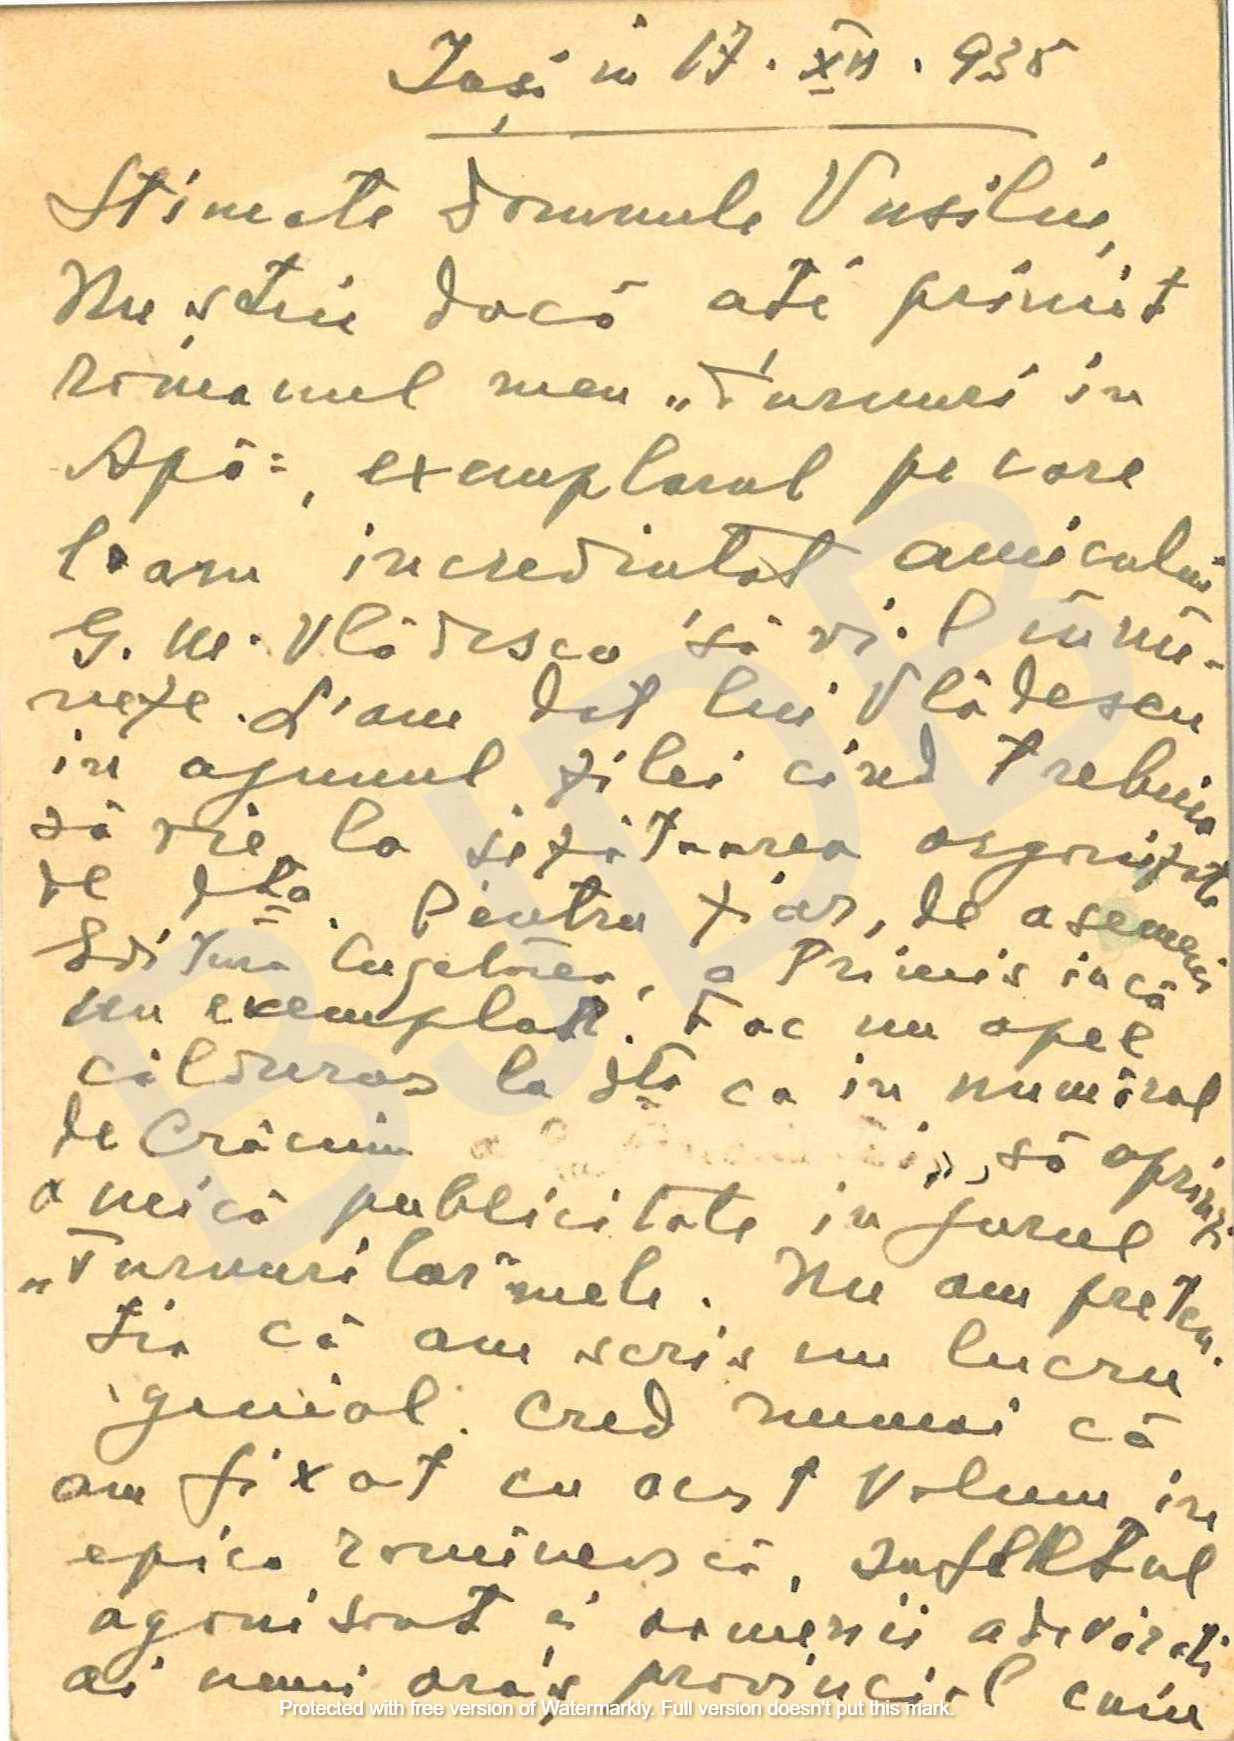 Iași in 17 · XII · 935
Stimate domnule Vasiliu,
Nu știu dacă ați primit
romanul meu „Turnuri in
Apă", exemplarul pe care
l-am incredintat amicului
G. M. Vlădescu să vi-l inmâ-
neze. L'am dat lui Vlădescu
in ajunul zilei cind trebuia
să vie la șezătoarea organizată
de dta. Pentru ziar, de asemeni
Editura Cugetarea, a trimis incă
un exemplar. Fac un apel
călduros la dta ca in numărul
de Crăciun să aprinzi
o mică publicitate in jurul
„Turnurilor" mele. Nu am preten-
ția că am scris un lucru
genial. Cred numai că
am fixat cu acest volum in
epica romînească, sufletul
agonisant și oamenii adevărați
ai unui oraș provincial cum
BJDB
Protected with free version of Watermarkly. Full version doesn't put this mark.